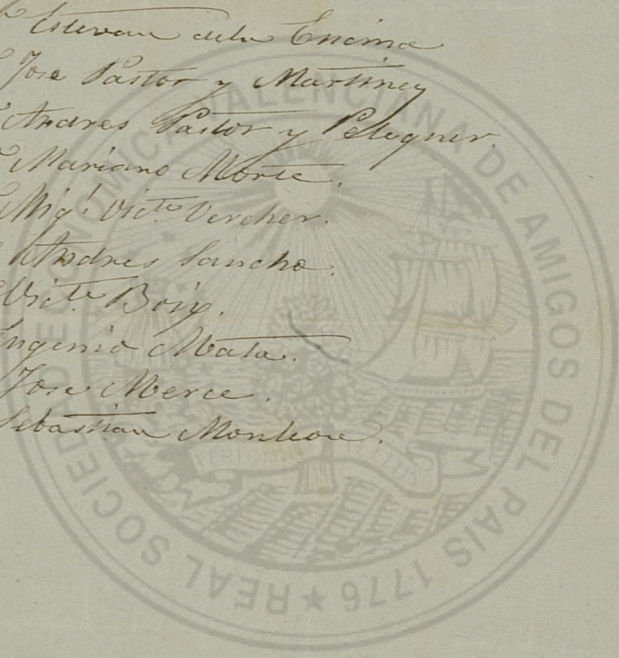 Estevan dela Encina
Jose Pastor y Martinez
Andres Pastor y Peleguer.
Mariano Morte.
Mig.l Vict.e Vercher.
Andres Sancho.
Vict.e Boix.
Eugenio Mata.
Jose Merce.
Sebastian Monleon.
REAL SOCIEDAD ECONOMICA VALENCIANA DE AMIGOS DEL PAIS 1776